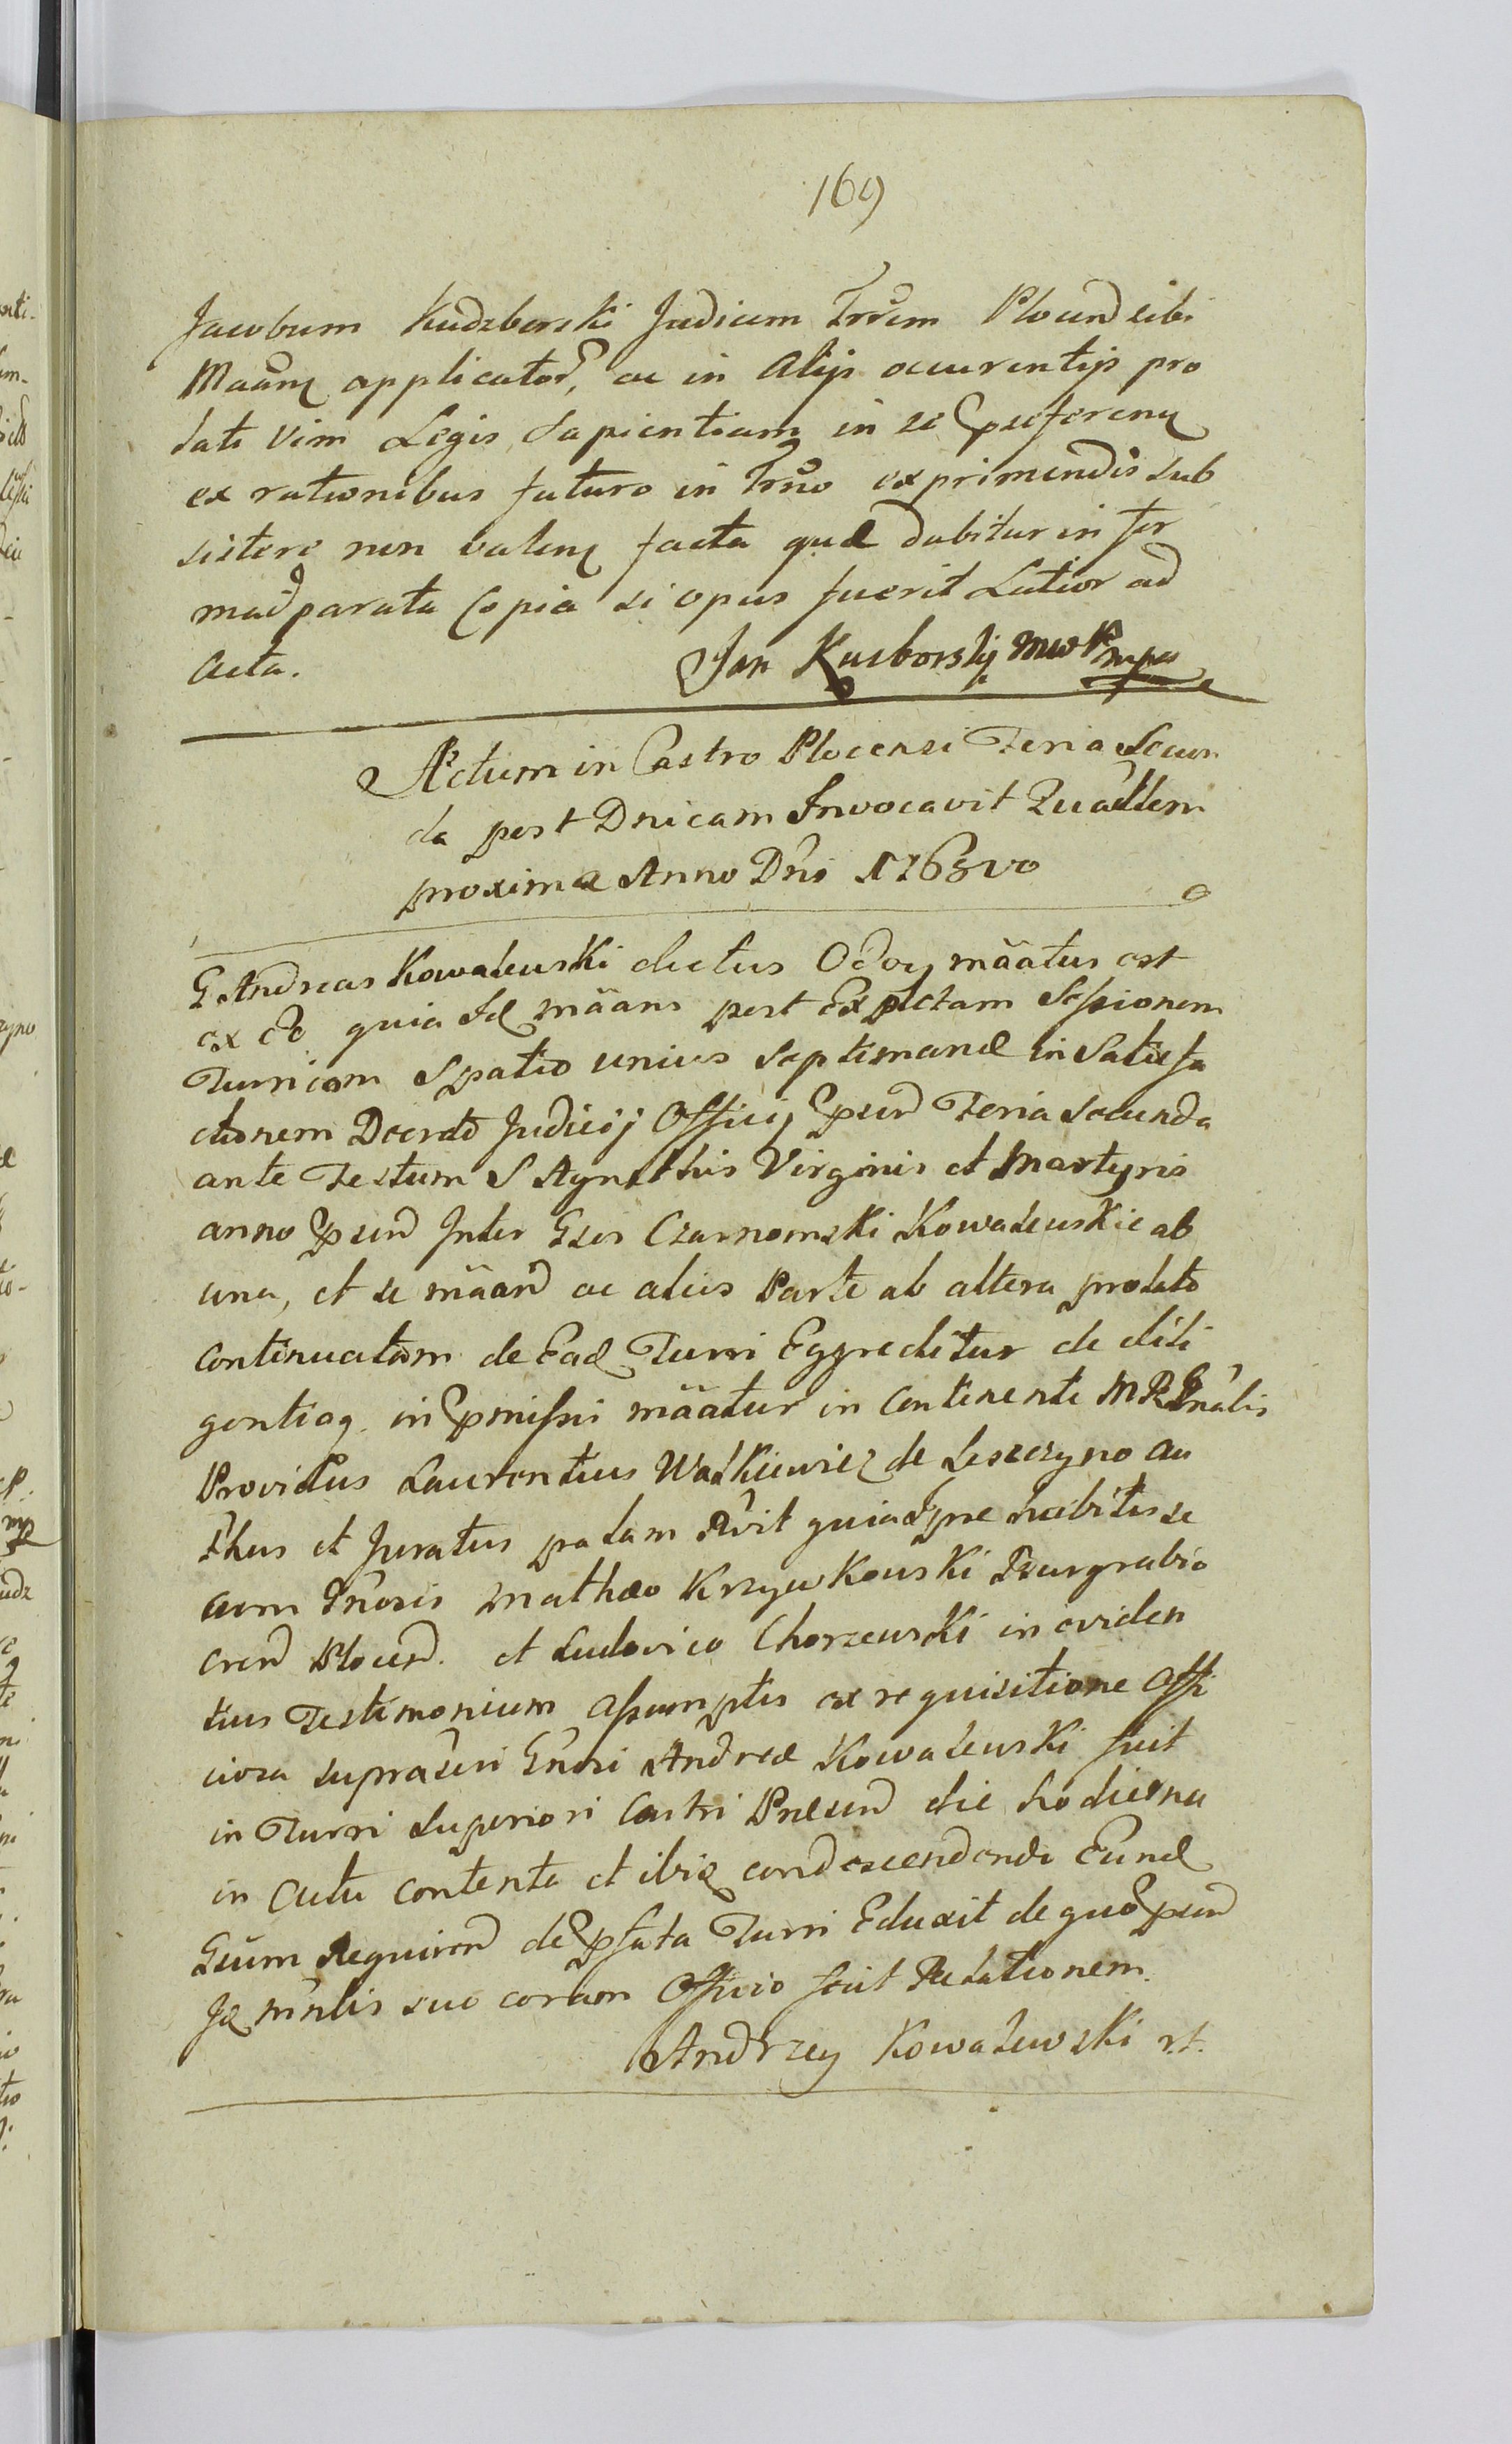 169
Jacobum Kudzborski Judicem Trrem Plocen sibi
Maam applicator, ac in Alijs occurentijs pro
lati Vim Legis Sapientiam in se praeferenq
ex rationibus futuro in Trno exprimendis sub
sistere non valenq facta quae dabitur in for
ma parata Copia si opus fuerit Latior ad
Acta.
Jan Kucborskj mwP mpa
Actum in Castro Plocensi Feria Secun
da post Dnicam Invocavit Quadlem
proxima Anno Dni 1765vo
G Andreas Kowalewski dictus Odoy mãatus est
ex eo quia Se mãans post Expletam Sessionem
Turriam Spatio unius Septimanae in Satisfa
ctionem Decreto Judicij Officij psen Feria Secunda
ante Festum S Agnethis Virginis et Martyris
anno psen Inter Gsos Czarnomski Kowalewskie ab
una, et se mãan ac alios Parte ab altera prolato
continuatam de Ead Turri Eggreditur de dili
gentiaq in pmissis mãatur in Continente MRGnalis
Providus Laurentius Walkiewicz de Leszczyno au
thus et Juratus palam Rvit quia Ipse habitis se
cum Gnosis Mathaeo Krzywkowski Burgrabio
cren Plocen. et Ludovico Chorzewski in eviden
tius Testimonium assumptis ex requisitione Offi
ciosa supradicti Gnosi Andreae Kowalewski fuit
in Turri Superiori Castri Plocen die hodierna
in Actu contenta et ibiq condescendendo Eund
Gsum Requiren de pfata Turri Eduxit de quo psen
Id mnlis suo coram Officio fecit Relationem.
Andrzey Kowalewski r.t.